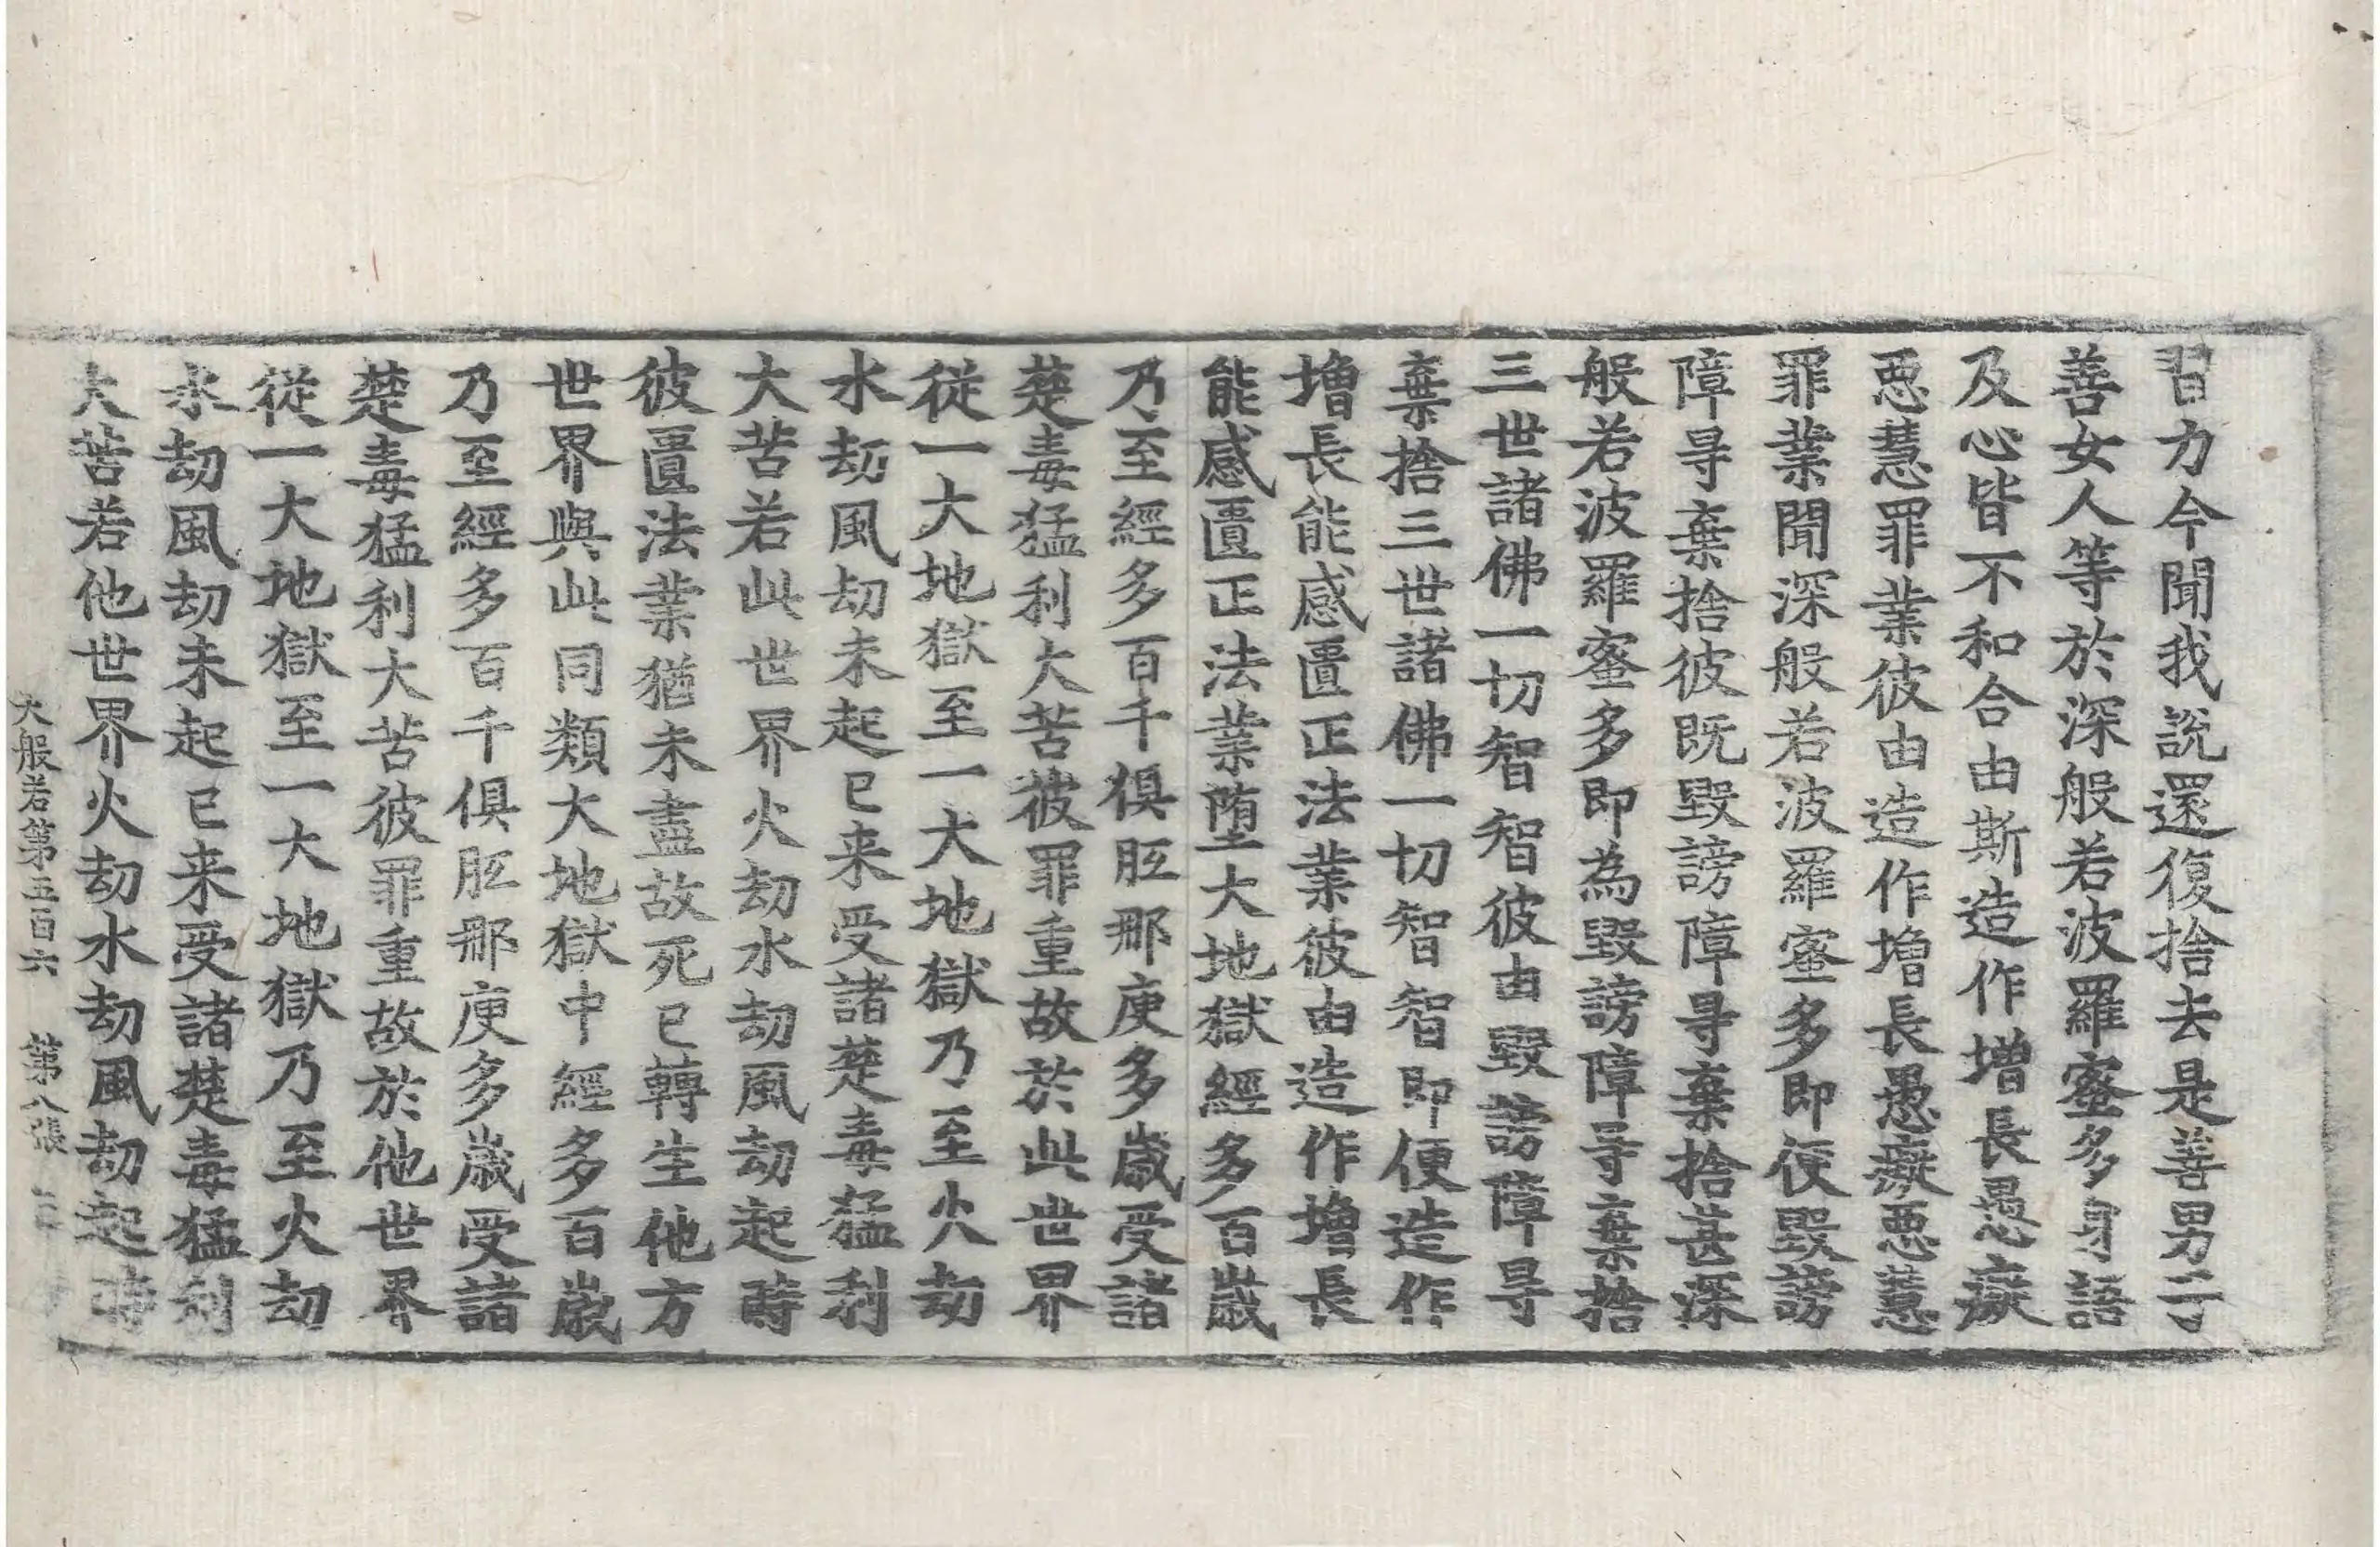 習力今聞我說還復捨去是善男子
善女人等於深般若波羅蜜多身語
及心皆不和合由斯造作增長愚癡
惡慧罪業彼由造作增長愚癡惡慧
罪業聞深般若波羅蜜多即便毀謗
障㝵棄捨彼既毀謗障㝵棄捨甚深
般若波羅蜜多即為毀謗障㝵棄捨
三世諸佛一切智智彼由毀謗障㝵
棄捨三世諸佛一切智智即便造作
增長能感匱正法業彼由造作增長
能感匱正法業墮大地獄經多百歲
乃至經多百千俱胝那庾多歲受諸
楚毒猛利大苦彼罪重故於此世界
從一大地獄至一大地獄乃至火劫
水劫風劫未起已来受諸楚毒猛利
大苦若此世界火劫水劫風劫起時
彼匱法業猶未盡故死已轉生他方
世界與此同類大地獄中經多百歲
乃至經多百千俱胝那庾多歲受諸
楚毒猛利大苦彼罪重故於他世界
從一大地獄至一大地獄乃至火劫
水劫風劫未起已来受諸楚毒猛利
大苦若他世界火劫水劫風劫起時
大般若第五百六 第八張